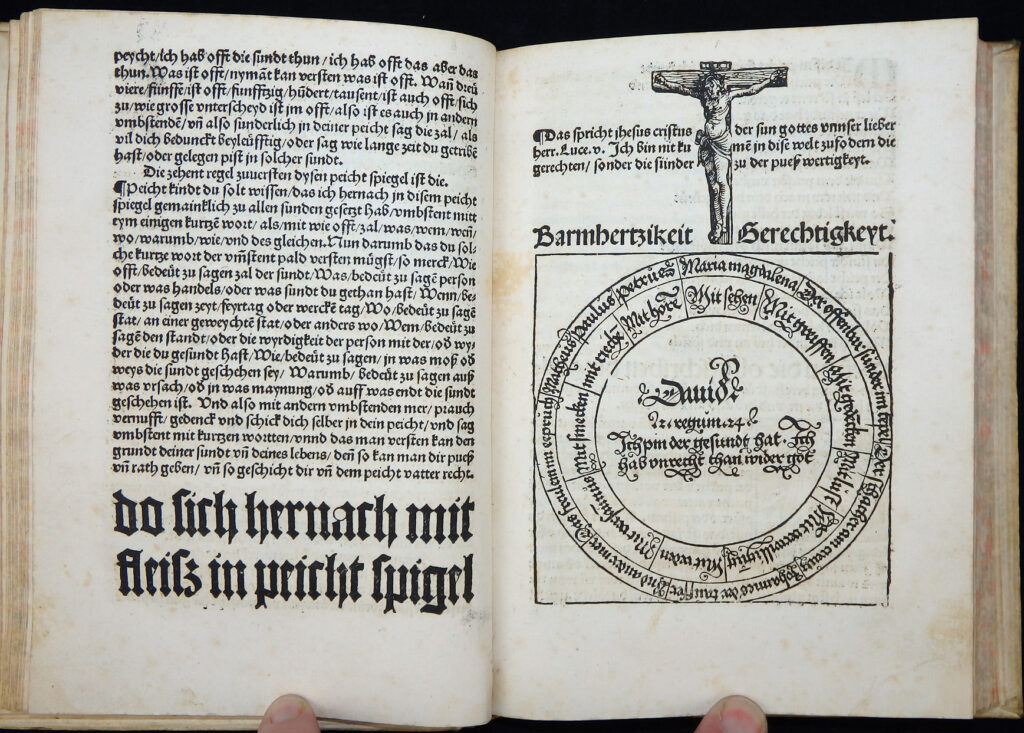 peycht/ich hab offt die sundt thun/ich hab offt das aber das
thun. Was ist offt/nymāt kan versten was ist offt. Wañ dreü
viere/fünffe/ist offt/funffzig/hūdert/tausent/ist auch offt/sich
zu/wie grosse vnterscheyd ist im offt/also ist es auch in andern
vmbstendē/vñ also sunderlich in deiner peicht sag die zal/als
vil dich bedunckt beyleüfftig/oder sag wie lange zeit du getribē
hast/oder gelegen pist in solcher sundt.
Die zehent regel zuversten dysen peicht spiegel ist die.
¶Peicht kindt du solt wissen/das ich hernach in disem peicht
spiegel gemainklich zu allen sunden gesetzt hab/vmbstent mitt
eym einigen kurtzē wort/als/mit wie offt/zal/was/wem/weñ/
wo/warumb/wie/vnd des gleichen. Nun darumb das du sol-
che kurtze wort der vm̄stent pald versten mügst/so merck/Wie
offt/bedeüt zu sagen zal der sundt/Was/bedeüt zu sagē person
oder was handels/oder was sundt du gethan hast/Wenn/be-
deüt zu sagen zeyt/feyrtag oder werckē tag/Wo/bedeüt zu sagen
stat/an einer geweychtē stat/oder anders wo/Wem/bedeüt zu
sagē den standt/oder die wyrdigkeit der person mit der/ob wy-
der die du gesundt hast/Wie/bedeüt zu sagen/in was moß ob
weys die sundt geschehen sey/Warumb/bedeüt zu sagen auß
was vrsach/ob in was maynung/ob auff was endt die sundt
geschehen ist. Vnd also mit andern vmbstenden mer/prauch
vernufft/gedenck vnd schick dich selber in dein peicht/vnd sag
vmbstent mit kurtzen wortten/vnnd das man versten kan den
grundt deiner sundt vñ deines lebens/deñ so kan man dir pueß
vñ rath geben/vñ so geschicht dir vñ dem peicht vatter recht.
do sich hernach mit
fleisz in peicht spigel
¶Das spricht jhesus cristus der sun gottes vnnser lieber
herr. Luce. v. Ich bin nit kumē in dise welt zufodern die
gerechten/sonder die sünder zu der pueß wertigkeyt.
Barmhertzikeit Gerechtigkeyt.
Maria magdalena
Der offenbar sunder im tempel
Der schacher am creütz
Johannes der tauffer
Vnd ander mer
Matheus
Paulus
Petrus
Mit sehen
Mit greyffen
Mit gedencken
Mit lust
Mit verwilligūg
Mit reden
Mit smecken
mit riechē
Mit hörē
David
2 regum 24
Ich pin der gesundt hat. Ich
hab vnrecht than wider got